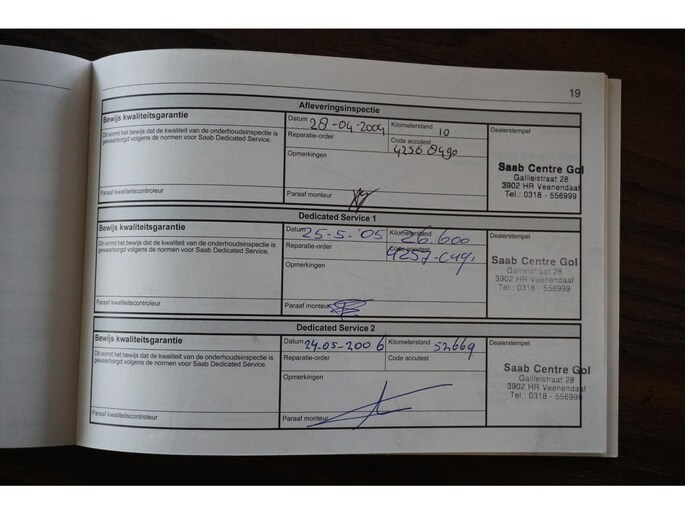 19
Afleveringsinspectie
Bewijs kwaliteitsgarantie
Dit vormt het bewijs dat de kwaliteit van de onderhoudsinspectie is
gewaarborgd volgens de normen voor Saab Dedicated Service.
Paraaf kwaliteitscontroleur
Datum 28-04-2004
Kilometerstand 10
Reparatie-order
Code accutest
Opmerkingen
Paraaf monteur
Dealerstempel
Saab Centre Gol
Galileistraat 28
3902 HR Veenendaal
Tel.: 0318 - 556999
Dedicated Service 1
Bewijs kwaliteitsgarantie
Dit vormt het bewijs dat de kwaliteit van de onderhoudsinspectie is
gewaarborgd volgens de normen voor Saab Dedicated Service.
Paraaf kwaliteitscontroleur
Datum 25-5-'05
Kilometerstand 26.600
Reparatie-order
Code accutest
Opmerkingen
Paraaf monteur
Dealerstempel
Saab Centre Gol
Galileistraat 28
3902 HR Veenendaal
Tel.: 0318 - 556999
Dedicated Service 2
Bewijs kwaliteitsgarantie
Dit vormt het bewijs dat de kwaliteit van de onderhoudsinspectie is
gewaarborgd volgens de normen voor Saab Dedicated Service.
Paraaf kwaliteitscontroleur
Datum 24-05-2006
Kilometerstand 52669
Reparatie-order
Code accutest
Opmerkingen
Paraaf monteur
Dealerstempel
Saab Centre Gol
Galileistraat 28
3902 HR Veenendaal
Tel.: 0318 - 556999